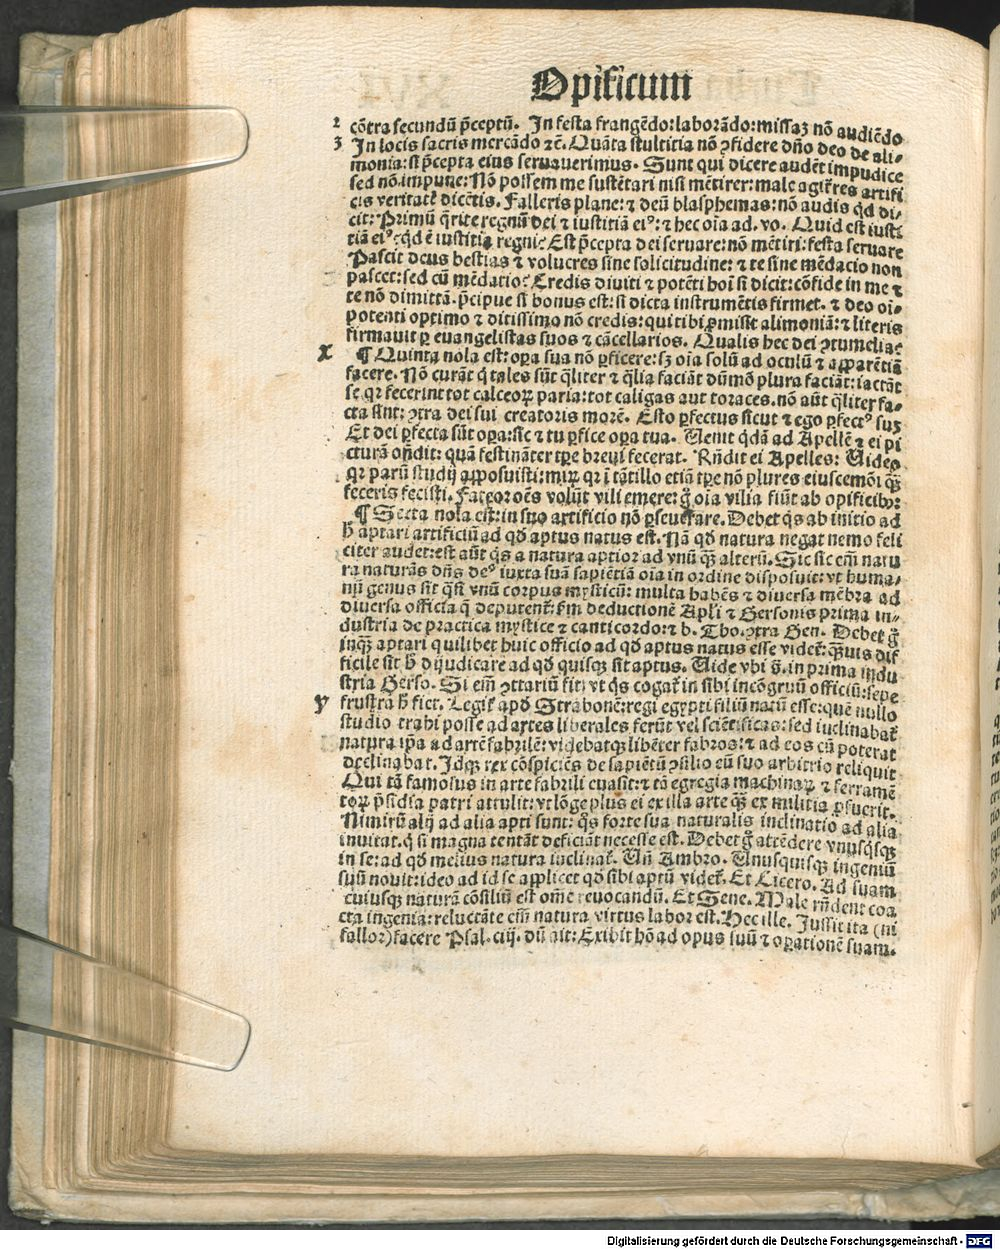 Opificum
2 cõtra secundũ p̃ceptũ. In festa frangẽdo: laborãdo: missaʒ nõ audiẽdo
3 In locis sacris mercãdo ⁊c̃. Quãta stultitia nõ ꝯfidere dño deo de ali⸗
monia: si p̃cepta eius seruauerimus. Sunt qui dicere audẽt impudice
sed nõ impune: Nõ possem me sustẽtari nisi mẽtirer: male agit̃ res artifi
cis veritatẽ dicẽtis. Falleris plane: ⁊ deũ blasphemas: nõ audis qd̃ di⸗
cit: Primũ q̃rite regnũ dei ⁊ iustitiã eiꝰ: ⁊ hec oĩa ad. vo. Quid est iusti
tiã eiꝰ: qd̃ ẽ iustitia regni? Est p̃cepta dei seruare: nõ mẽtiri: festa seruare
Pascit deus bestias ⁊ volucres sine solicitudine: ⁊ te sine mẽdacio non
pascet: sed cũ mẽdatio? Credis diuiti ⁊ potẽti hoĩ si dicit: cõfide in me ⁊
te nõ dimittã. p̃cipue si bonus est: si dicta instrumẽtis firmet. ⁊ deo oĩ⸗
potenti optimo ⁊ ditissimo nõ credis: qui tibi ꝓmisit alimoniã: ⁊ literis
firmauit ꝑ euangelistas suos ⁊ cãcellarios. Qualis hec dei ꝯtumeliae
x ¶ Quinta nola est: oꝑa sua nõ ꝑficere: sʒ oĩa solũ ad oculũ ⁊ apparẽtiã
facere. Nõ curãt q̃ tales sũt q̃liter ⁊ q̃lia faciãt dũmõ plura faciãt: iactãt
se qꝛ fecerint tot calceoꝝ paria: tot caligas aut toraces. nõ aũt q̃liter fa⸗
cta sint: ꝯtra dei sui creatoris morẽ. Esto ꝑfectus sicut ⁊ ego ꝑfectꝰ suʒ
Et dei ꝑfecta sũt oꝑa: sic ⁊ tu ꝑfice oꝑa tua. Uenit q̃dã ad Apellẽ ⁊ ei pi
cturã oñdit: quã festinãter tꝑe breui fecerat. Rñdit ei Apelles: Uideo
qꝛ parũ studij apposuisti: miꝝ qꝛ ĩ tãtillo etiã tꝑe nõ plures eiuscemõi q̃ʒ
feceris fecisti. Fateor oẽs volũt vili emere: g̃ oĩa vilia fiũt ab opificibꝰ:
¶ Sexta nola est: in suo artificio nõ ꝑseuerare. Debet q̃s ab initio ad
h̃ aptari artificiũ ad qd̃ aptus natus est. Nã qd̃ natura negat nemo feli
citer audet: est aũt q̃s a natura aptior ad vnũ q̃ʒ alterũ. Sic sic em̃ natu
ra naturãs dñs deꝰ iuxta suã sapiẽtiã oĩa in ordine disposuit: vt huma⸗
nũ genus sit q̃si vnũ corpus mysticũ: multa habẽs ⁊ diuersa mẽbra ad
diuersa officia q̃ deputent̃: ẜm deductionẽ Apl̃i ⁊ Gersonis prima in⸗
dustria de practica mystice ⁊ canticordo: ⁊ b. Tho. ꝯtra Gen. Debet g̃
inq̃ʒ aptari quilibet huic officio ad qd̃ aptus natus esse videt̃: q̃ʒuis dif
ficile sit h̃ dijudicare ad qd̃ quisqʒ sit aptus. Uide vbi s̃. in prima indu
stria Gerso. Si em̃ ꝯttariũ fit: vt q̃s cogat̃ in sibi incõgruũ officiũ: sepe
y frustra h̃ fiet. Legit̃ apd̃ Strabonẽ: regi egypti filiũ natũ esse: quẽ nullo
studio trahi posse ad artes liberales ferũt vel sciẽtificas: sed inclinabat̃
natura ip̃a ad artẽ fabrilẽ: videbatqʒ libẽter fabros: ⁊ ad eos cũ poterat
declinabat. Idqʒ rex cõspiciẽs de sapiẽtũ ꝯsilio eũ suo arbitrio reliquit
Qui tã famosus in arte fabrili euasit: ⁊ tã egregia machinaꝝ ⁊ ferramẽ
toꝝ p̃sidia patri attulit: vt lõge plus ei ex illa arte q̃ʒ ex militia ꝓfuerit.
Nimirũ alij ad alia apti sunt: q̃s forte sua naturalis inclinatio ad alia
inuitat. q̃ si magna tentãt deficiãt necesse est. Debet g̃ attẽdere vnusq̃sqʒ
in se: ad qd̃ melius natura inclinat̃. Uñ Ambro. Unusquisqʒ ingeniũ
suũ nouit: ideo ad id se applicet qd̃ sibi aptũ videt̃. Et Cicero. Ad suam
cuiusqʒ naturã cõsiliũ est om̃e reuocandũ. Et Sene. Male rñdent coa
cta ingenia: reluctãte em̃ natura virtus labor est. Hec ille. Jussit ita (ni
fallor) facere Psal. ciij. dũ ait: Exibit hõ ad opus suũ ⁊ oꝑationẽ suam.
Digitalisierung gefördert durch die Deutsche Forschungsgemeinschaft - DFG